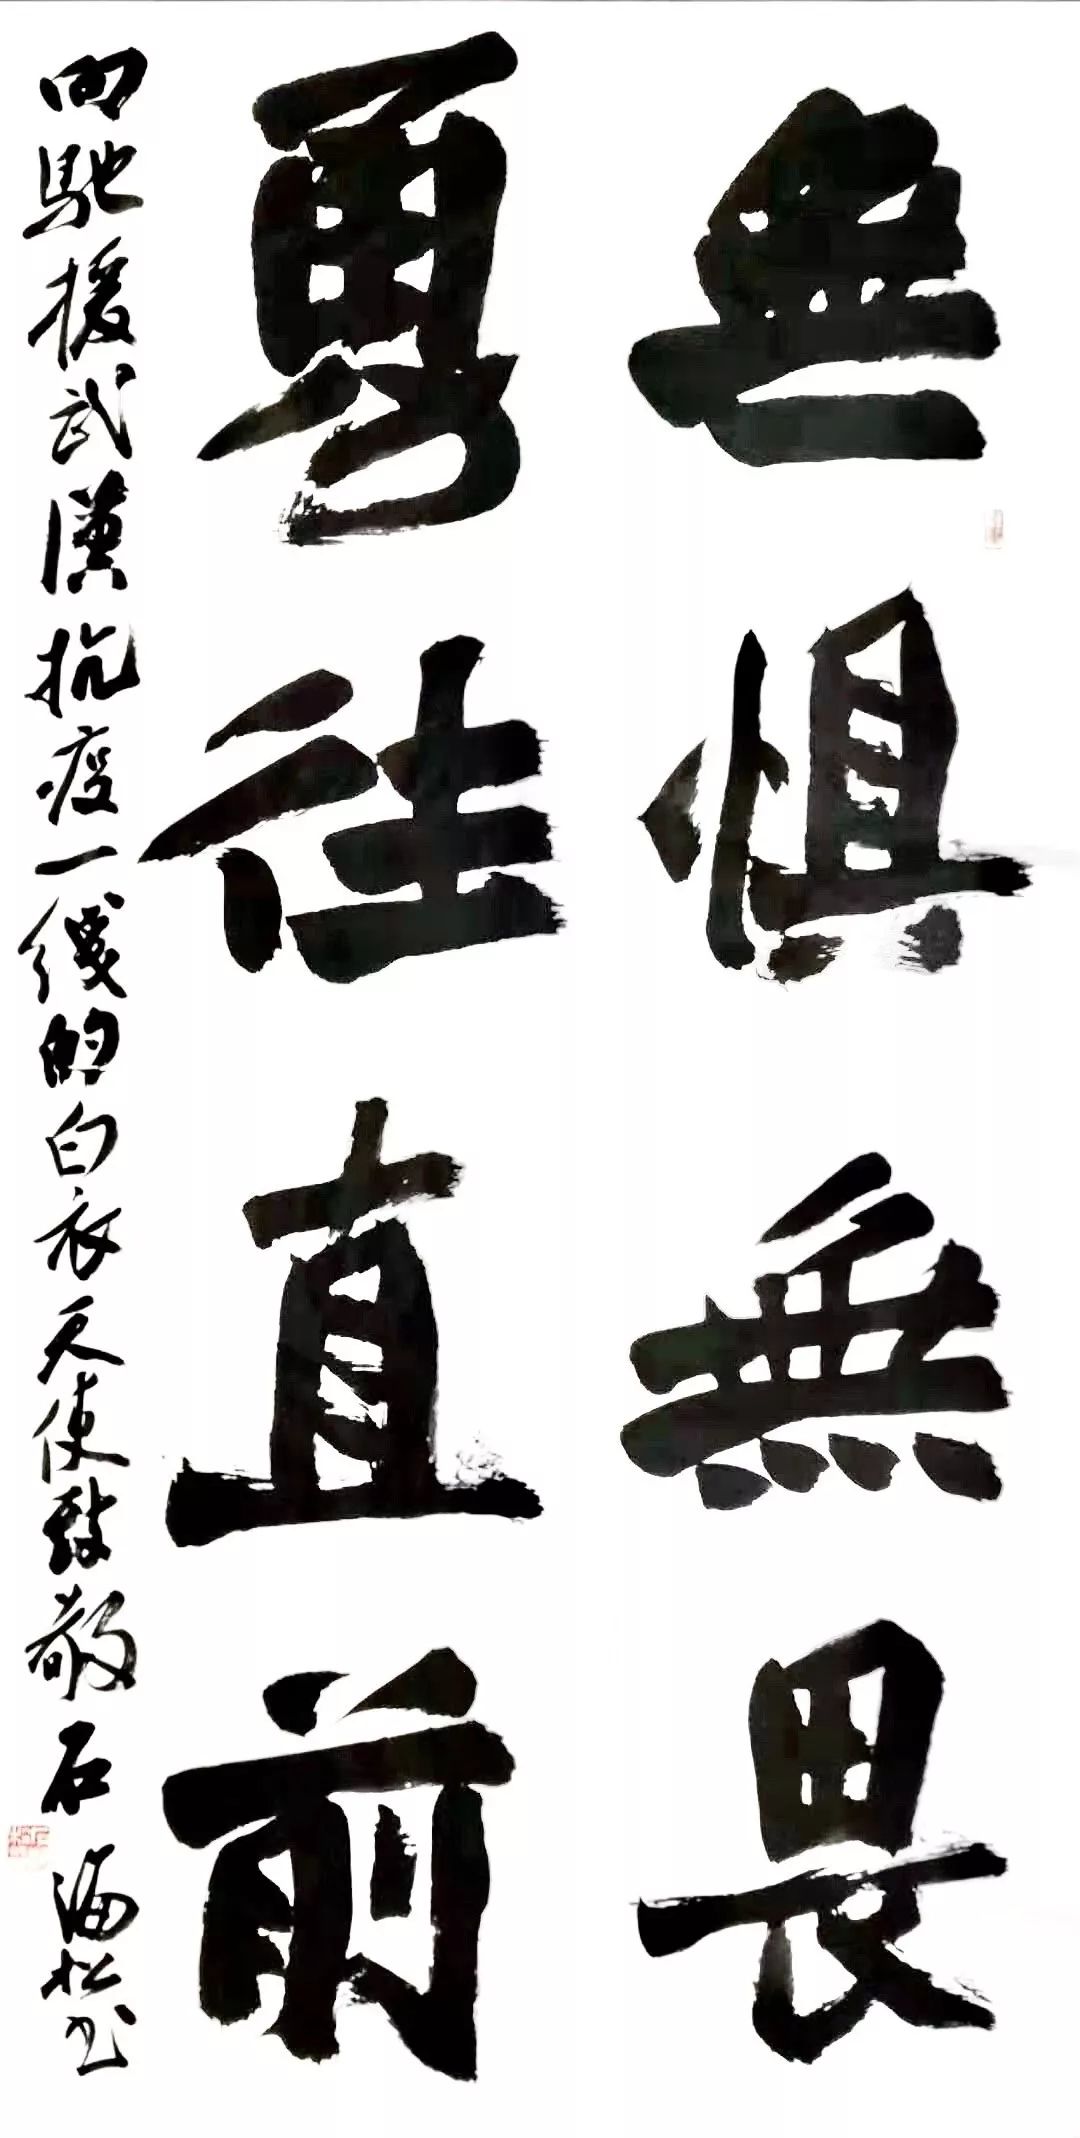 無惧無畏
勇往直前
向馳援武漢抗疫一綫的白衣天使致敬 石海松书